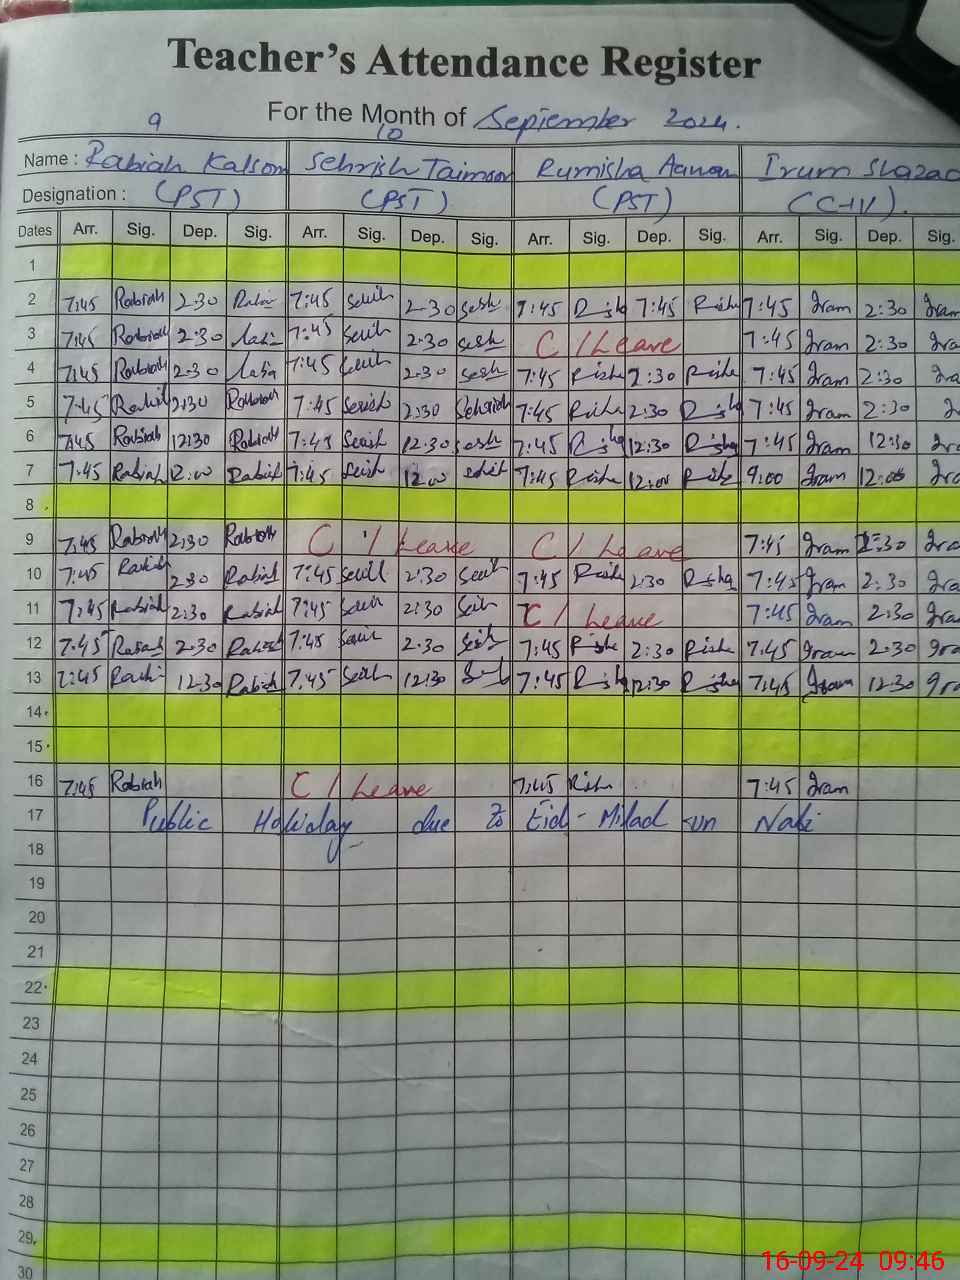 Teacher's Attendance Register
For the Month of September 2024.
9 10
Name : Rabiah Kalsom Sehrish Taimoor Rumisha Aawan Irum Shazad
Designation : (PST) (PST) (PST) (C-IV).
Dates Arr. Sig. Dep. Sig. Arr. Sig. Dep. Sig. Arr. Sig. Dep. Sig. Arr. Sig. Dep. Sig.
1
2 7:45 Rabiah 2:30 7:45 2:30 sesh 7:45 7:45 7:45 Iram 2:30 Iram
3 7:45 Rabiah 2:30 7:45 2:30 sesh C / Leave 7:45 Iram 2:30 Ira
4 7:45 Rabiah 2:30 7:45 2:30 sesh 7:45 Rishe 2:30 Rishe 7:45 Iram 2:30 Ira
5 7:45 2:30 7:45 2:30 Sehrish 7:45 Rishe 2:30 7:45 Iram 2:30
6 7:45 Rabiah 12:30 Rabiah 7:45 12:30 sesh 7:45 12:30 7:45 Iram 12:30 Ira
7 7:45 Rabiah 12:00 Rabiah 7:45 12:00 7:45 Rishe 12:00 Rishe 9:00 Iram 12:00 Ira
8 .
9 7:45 Rabiah 2:30 Rabiah C / Leave C / Leave 7:45 Iram 2:30 Ira
10 7:45 Rabiah 2:30 Rabiah 7:45 2:30 7:45 Rishe 2:30 7:45 Iram 2:30 Ira
11 7:45 Rabiah 2:30 Rabiah 7:45 2:30 C / Leave 7:45 Iram 2:30 Ira
12 7:45 Rabiah 2:30 Rabiah 7:45 2:30 7:45 Rishe 2:30 Rishe 7:45 Iram 2:30 Ira
13 7:45 12:30 Rabiah 7:45 12:30 7:45 12:30 7:45 Iram 12:30 Ira
14 .
15 .
16 7:45 Rabiah C / Leave 7:45 7:45 Iram
17 Public Holiday due to Eid - Milad un Nabi
18
19
20
21
22 .
23
24
25
26
27
28
29 .
30
16-09-24 09:46